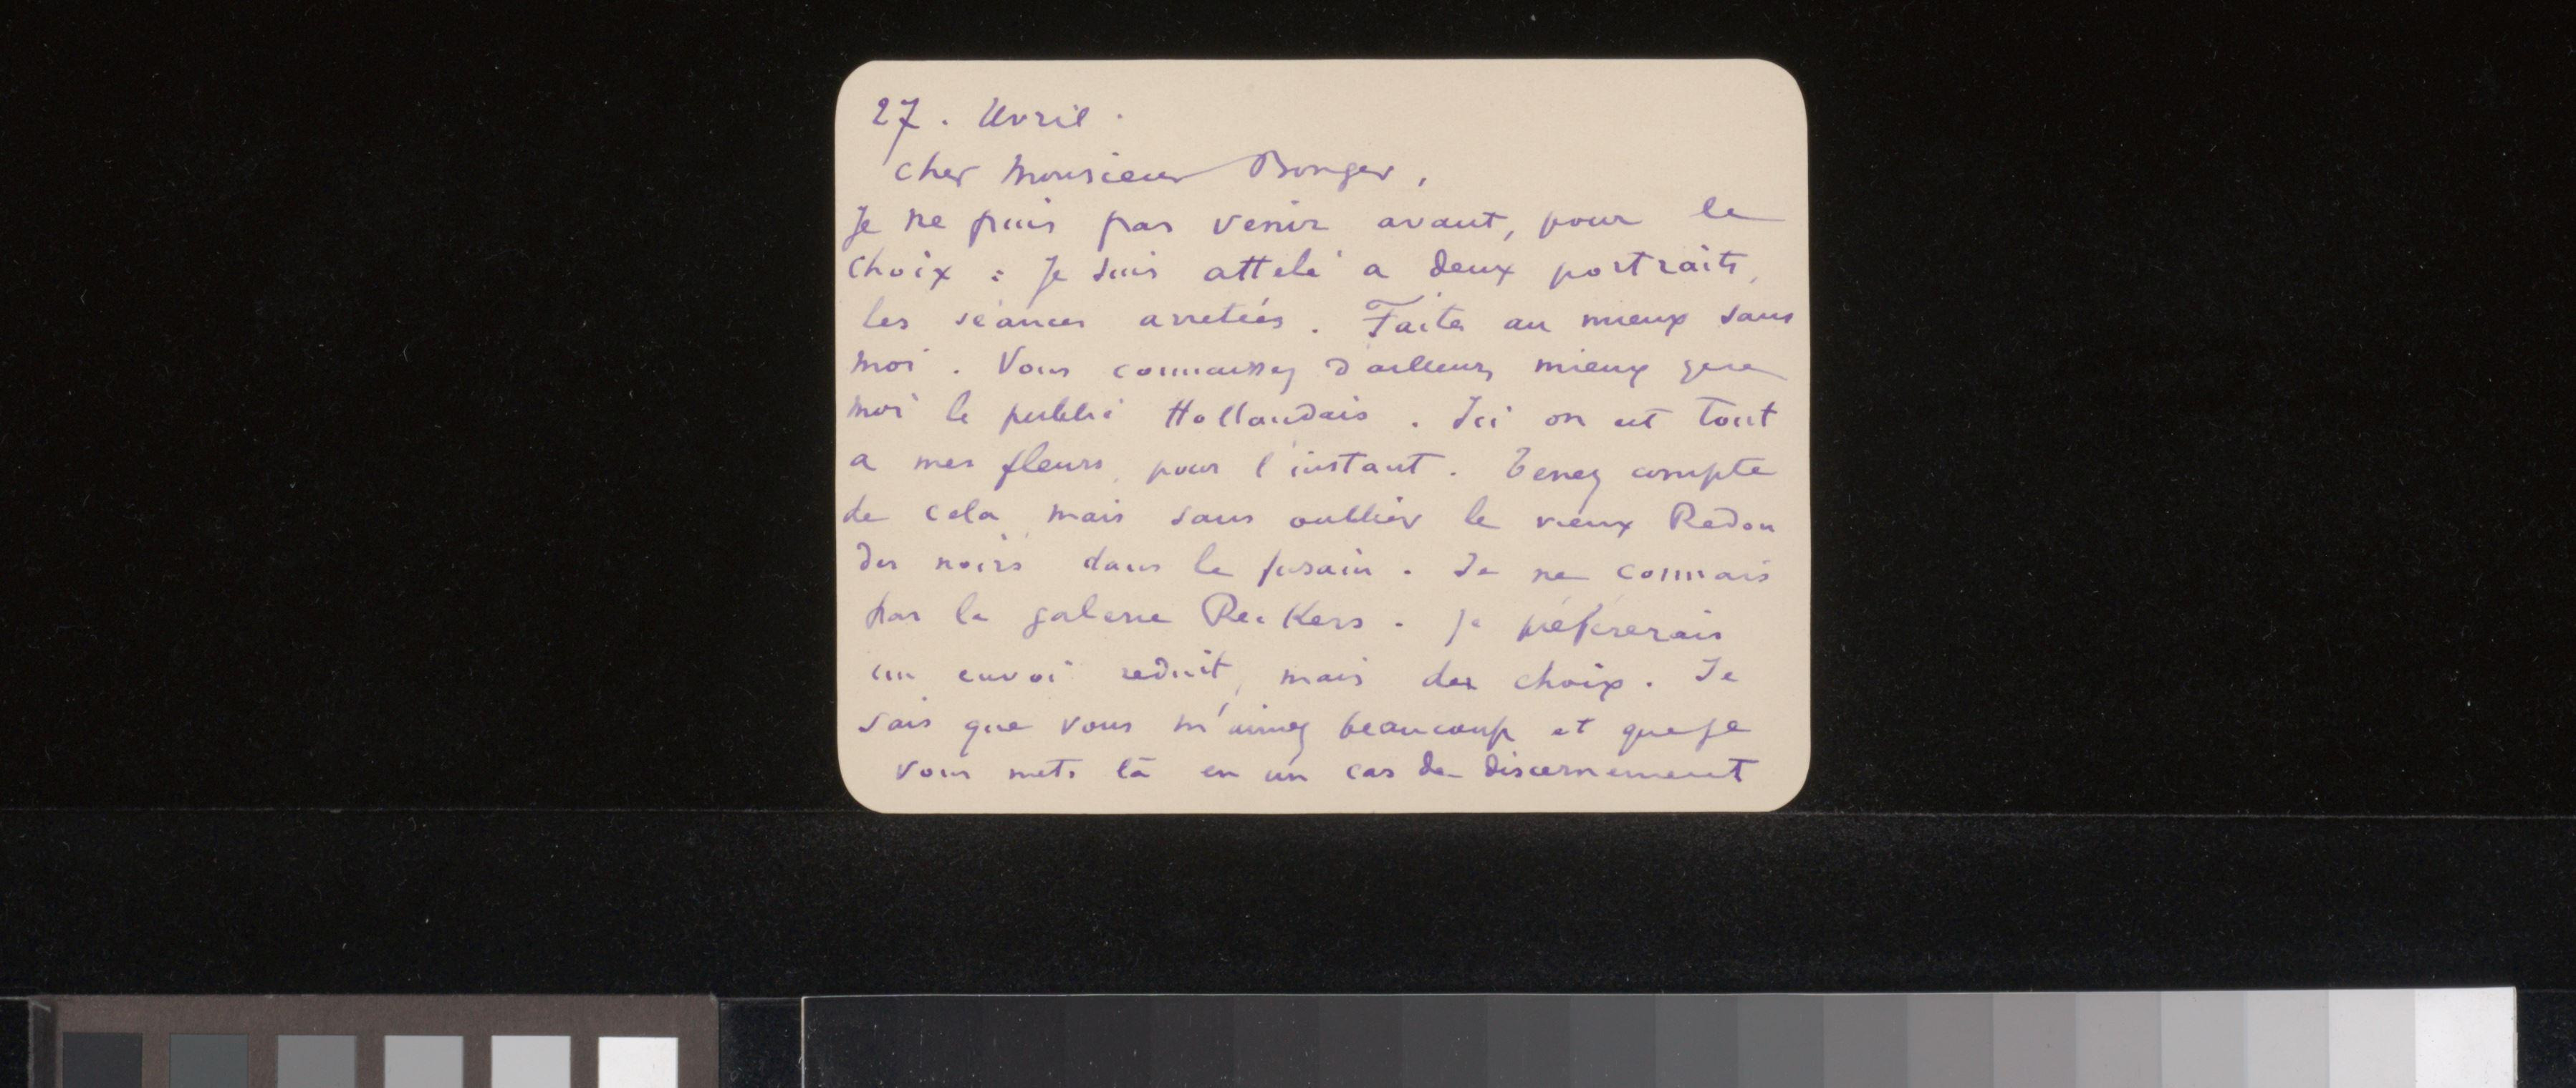 27. Avril.
Cher Monsieur Bonger,
Je ne puis pas venir avant, pour le
choix : Je suis attelé a deux portraits,
les séances arretées. Faites au mieux sans
moi. Vous connaissez d'ailleurs mieux que
moi le public Hollandais. Ici on est tout
a mes fleurs, pour l'instant. Tenez compte
de cela, mais sans oublier le vieux Redon
des noirs dans le fusain. Je ne connais
pas la galerie Reckers. Je préfererais
un envoi reduit, mais de choix. Je
sais que vous m'aimez beaucoup et que je
vous mets là en un cas de discernement